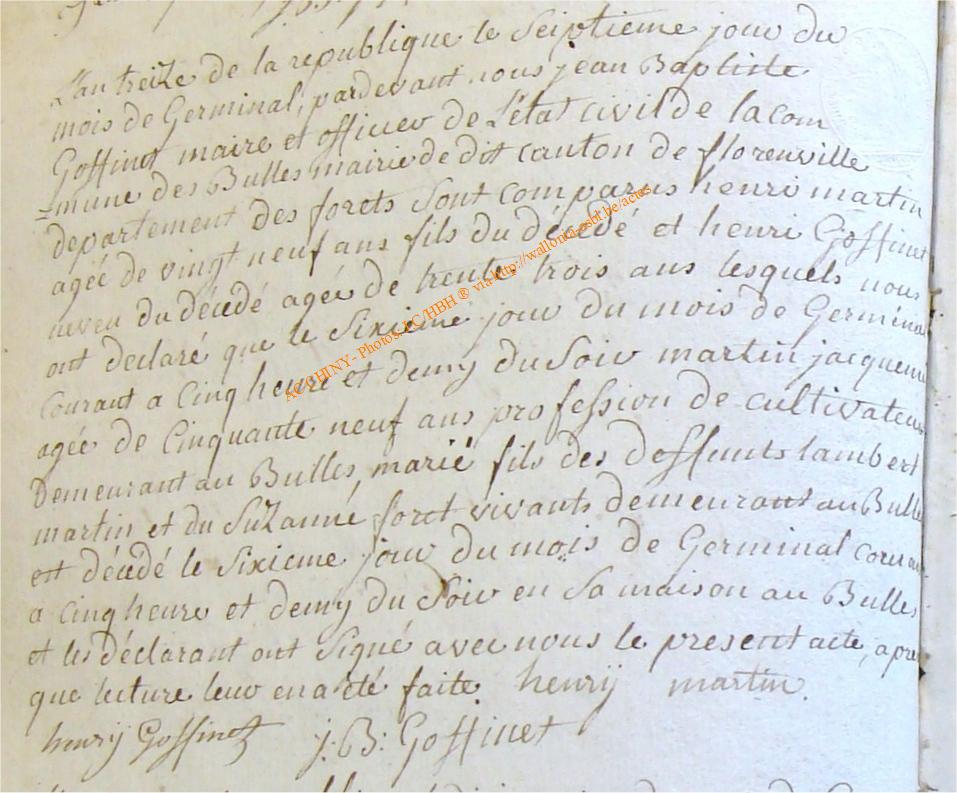 L'an treize de la republique le Seiptieme jour du
mois de Germinal, pardevant nous jean Baptiste
Goffinet maire et officier de L'état civil de la com
-mune des Bulles mairie de dit canton de florenville
departement des forets sont comparus henri martin
agée de vingt neuf ans fils du décedé et henri Goffinet
neveu du décedé agée de trente trois ans lesquels nous
ont declaré que le Sixieme jour du mois de Germinal
Courant a Cinq heure et demy du Soir martin jacquemin
agée de Cinquante neuf ans profession de cultivateur
Demeurant au Bulles, marié fils des deffunts lambert
martin et du Suzanné foret vivants demeurant au Bulles
est décédé le Sixieme jour du mois de Germinal courant
a cinq heure et demy du Soir en Sa maison au Bulles
et les déclarant ont Signé avec nous le present acte, apre
que lecture leur en a eté faite. henrij martin.
henrij Goffinet J: B: Goffinet
AC CHINY- Photos AC/HBH ® via http://wallonia-asbl.be/actes